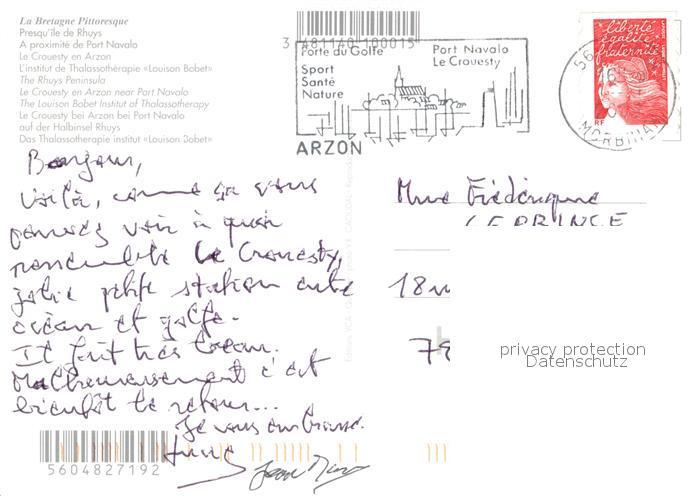 La Bretagne Pittoresque
Presqu'île de Rhuys
A proximité de Port Navalo
Le Crouesty en Arzon
L'institut de Thalassothérapie «Louison Bobet»
The Rhuys Peninsula
Le Crouesty en Arzon near Port Navalo
The Louison Bobet Institut of Thalassotherapy
Le Crouesty bei Arzon bei Port Navalo
auf der Halbinsel Rhuys
Das Thalassotherapie institut «Louison Bobet»
3 481140 100015
Porte du Golfe
Sport
Santé
Nature
Port Navalo
Le Crouesty
ARZON
liberté
égalité
fraternité
RF
56
MORBIHAN
Bonjour,
Voilà, comme ça vous
pouvez voir à quoi
ressemble le Crouesty,
jolie petite station entre
océan et golfe.
Il fait très beau.
Malheureusement c'est
bientôt le retour...
Je vous embrasse.
Mme Frédérique
LEPRINCE
18
privacy protection
Datenschutz
5604827192